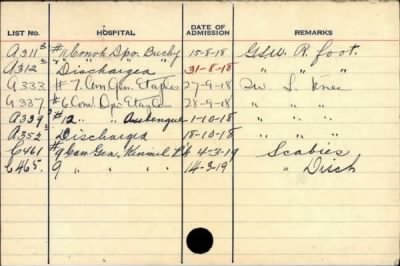 LIST NO. HOSPITAL DATE OF ADMISSION REMARKS
A311³ #11 Convh Dpo. Buchy 15-8-18 GSW. R. foot.
A312² Discharged 31-8-18 " " "
A333 #7. Can Gen. Etaples 27-9-18 SW L. Knee
A337 #6 Con. Dpo Etaples 28-9-18 " " "
A339³ #12 " " Aubengue 1-10-18 " " "
A352² Discharged 18-10-18 " " "
C461 #9 Can Gen. Kinmel Pk 4-3-19 Scabies
C465. 9 14-3-19 " Disch